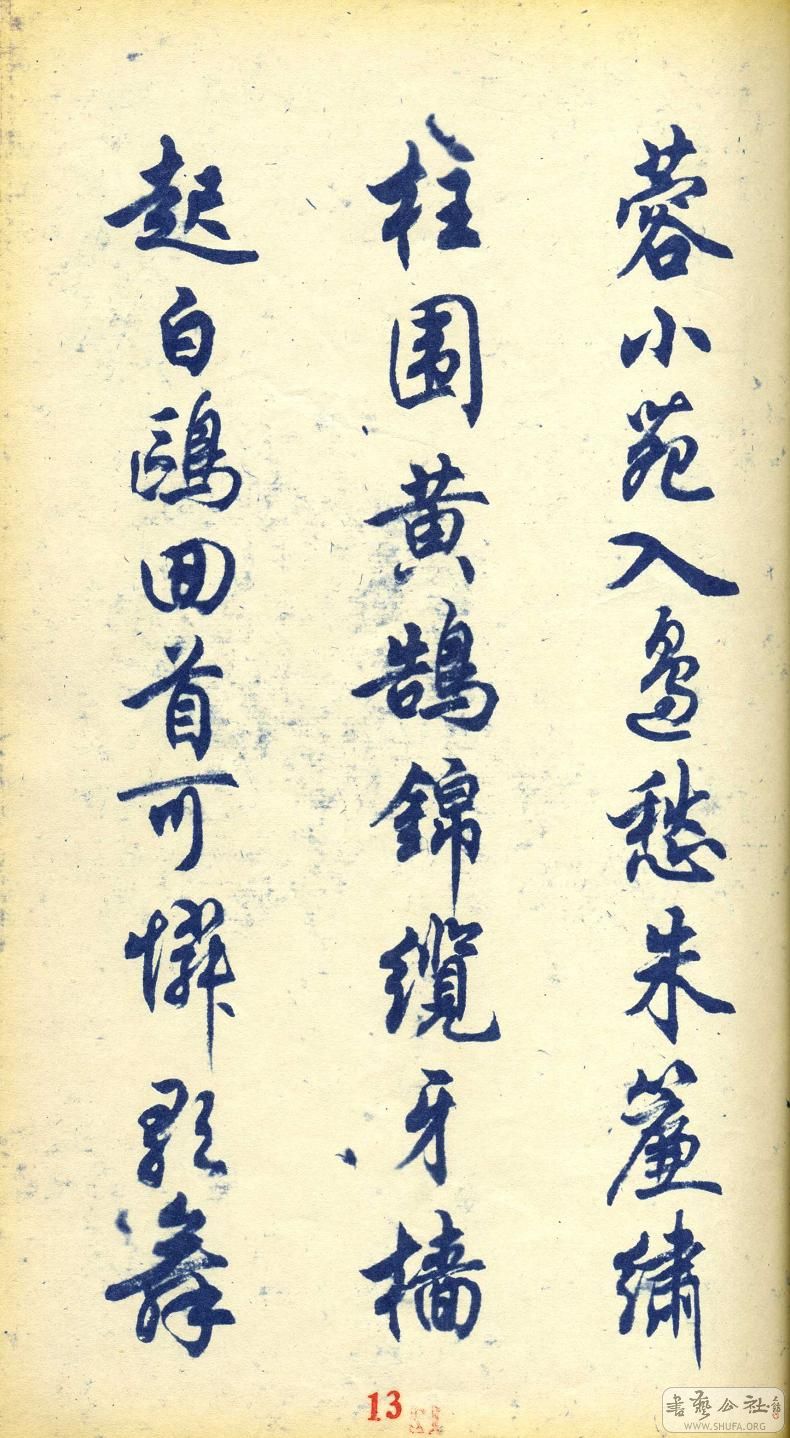 蓉小苑入邊愁朱簾繡
柱圍黃鵠錦纜牙檣
起白鷗回首可憐歌舞
13
書藝公社
WWW.SHUFA.ORG